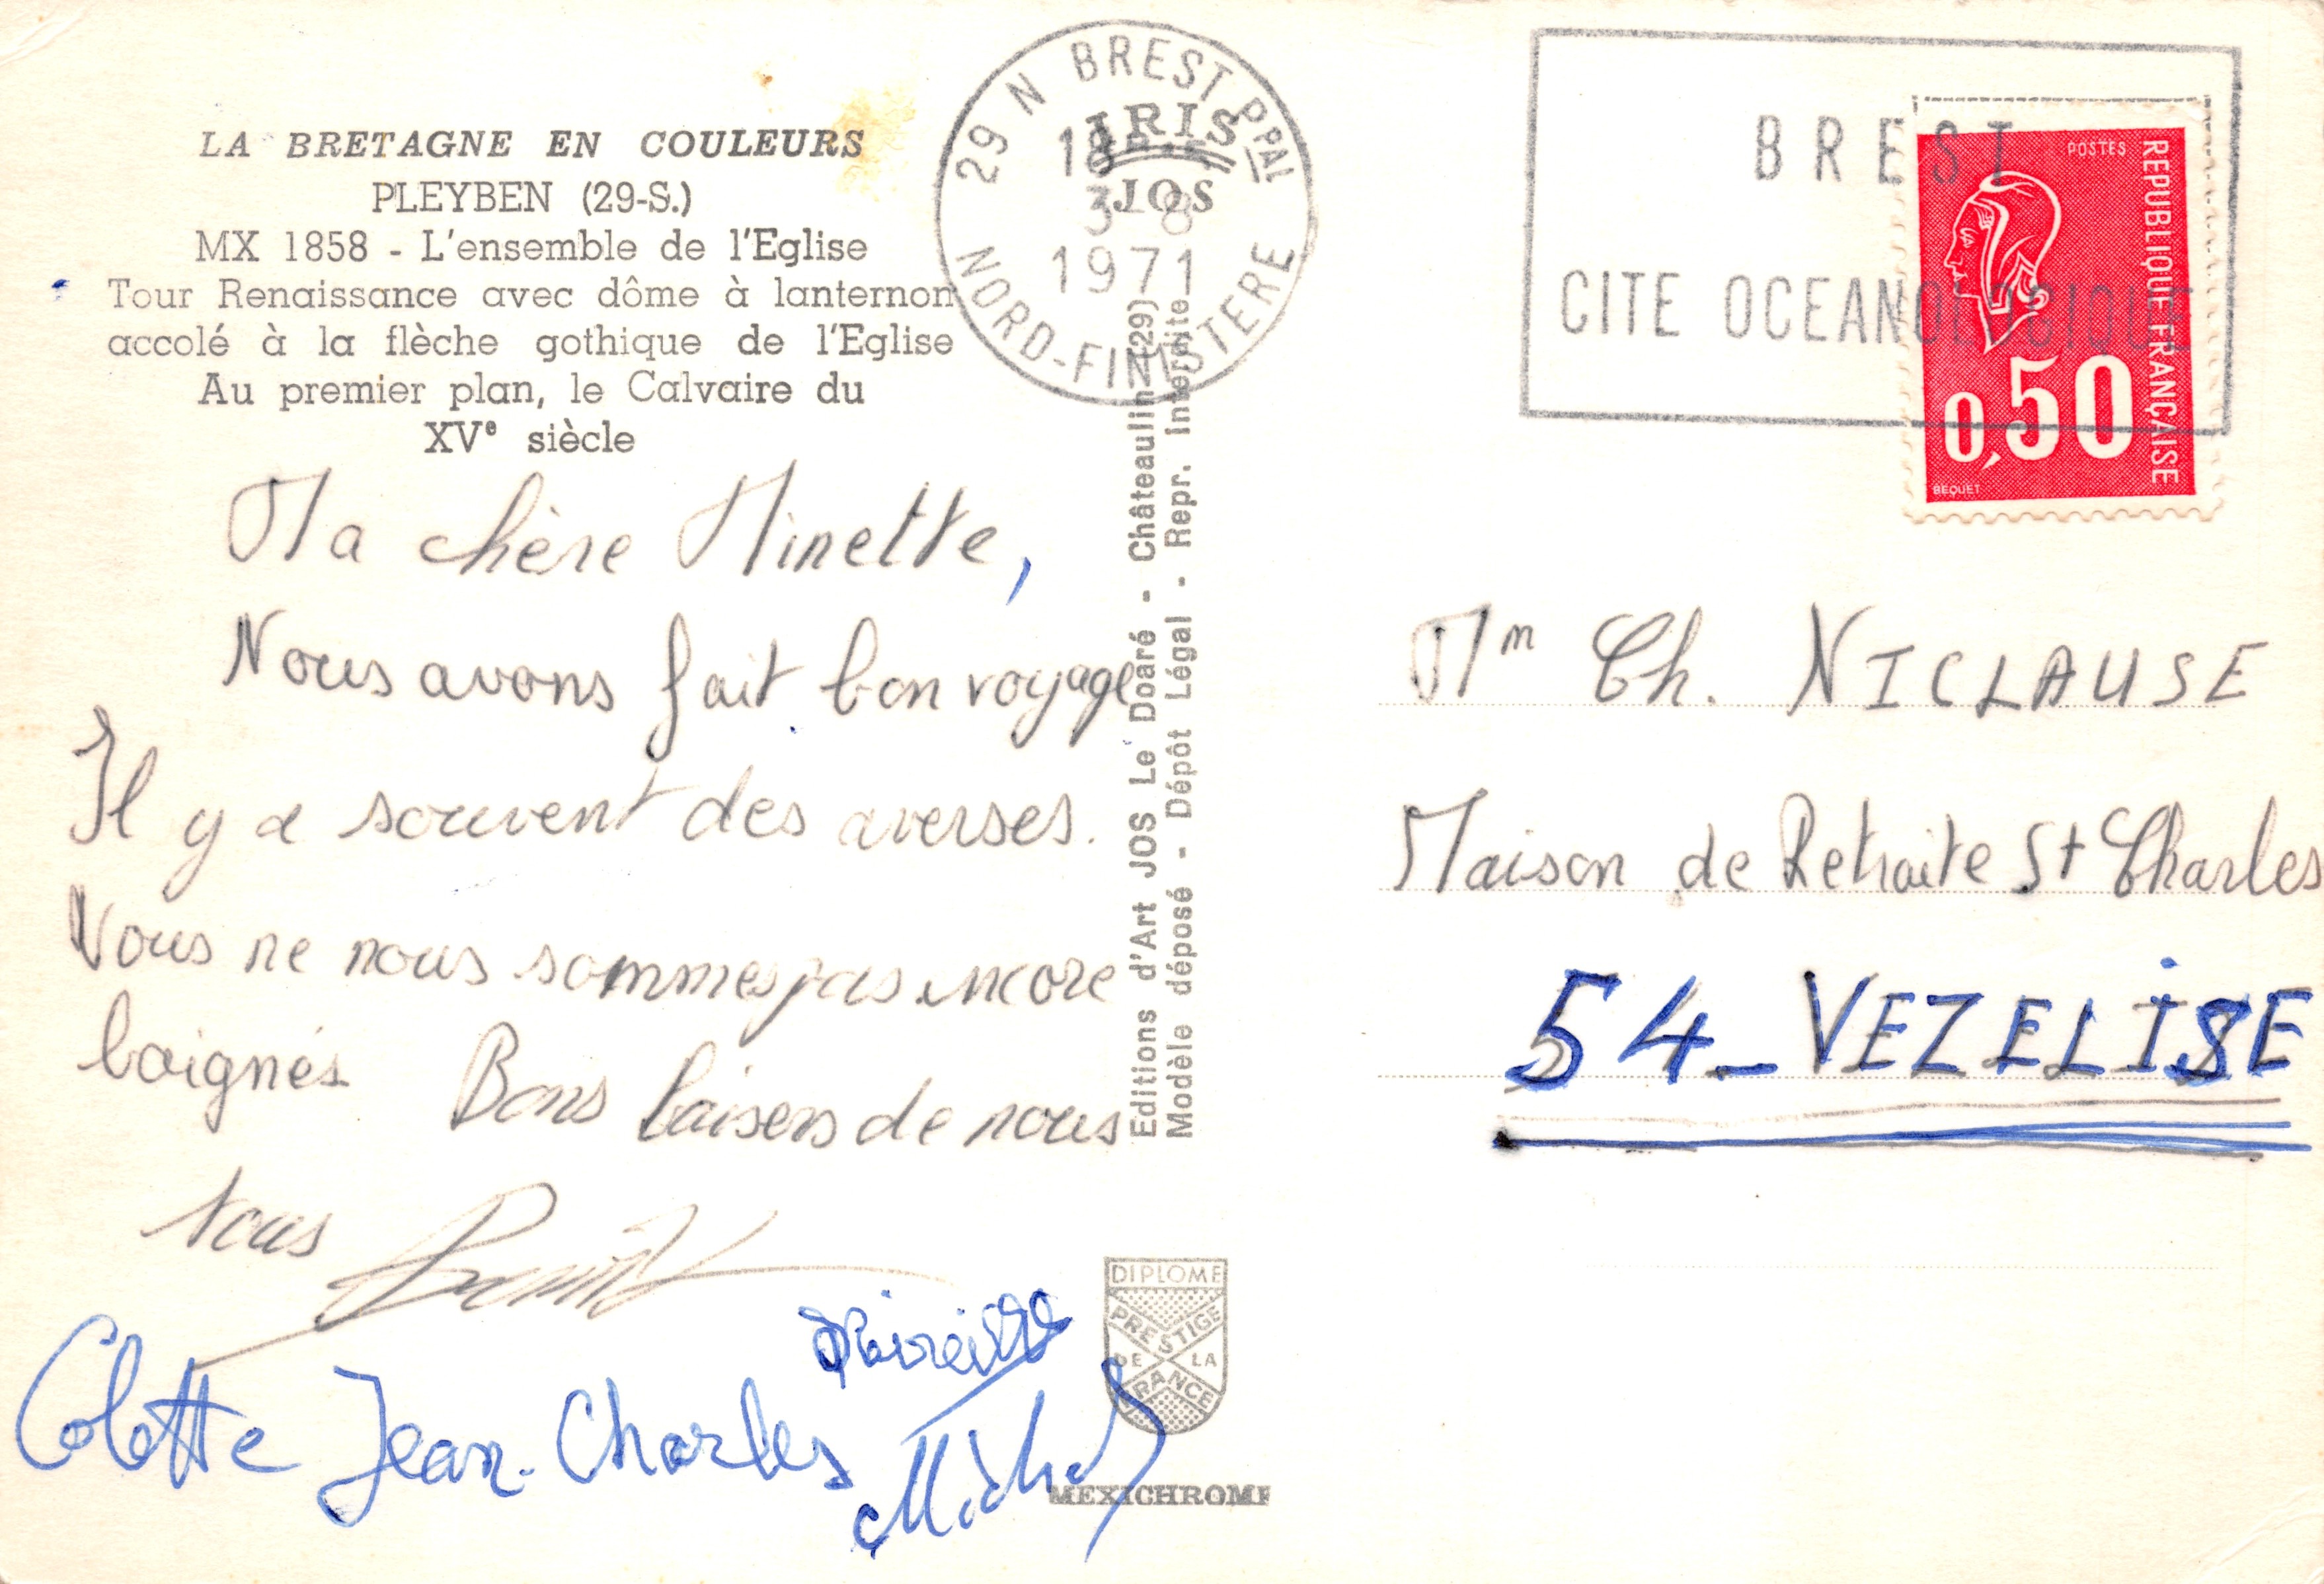 LA BRETAGNE EN COULEURS
PLEYBEN (29-S.)
MX 1858 - L'ensemble de l'Eglise
Tour Renaissance avec dôme à lanternon
accolé à la flèche gothique de l'Eglise
Au premier plan, le Calvaire du
XVe siècle
29 N BREST PPAL
18
3-8
1971
NORD-FINISTERE
IRIS
JOS
BREST
CITE OCEANOLOGIQUE
POSTES
REPUBLIQUE FRANÇAISE
0,50
BEQUET
Ma chère Minette,
Nous avons fait bon voyage
Il y a souvent des averses.
Nous ne nous sommes pas encore
baignés Bons baisers de nous
tous
Mireille
Colette Jean-Charles Michel
Editions d'Art JOS Le Doaré - Châteaulin (29)
Modèle déposé - Dépôt Légal - Repr. Interdite
Mm Ch. NICLAUSE
Maison de Retraite St Charles
54_VEZELISE
DIPLOME
PRESTIGE
DE LA
FRANCE
MEXICHROME